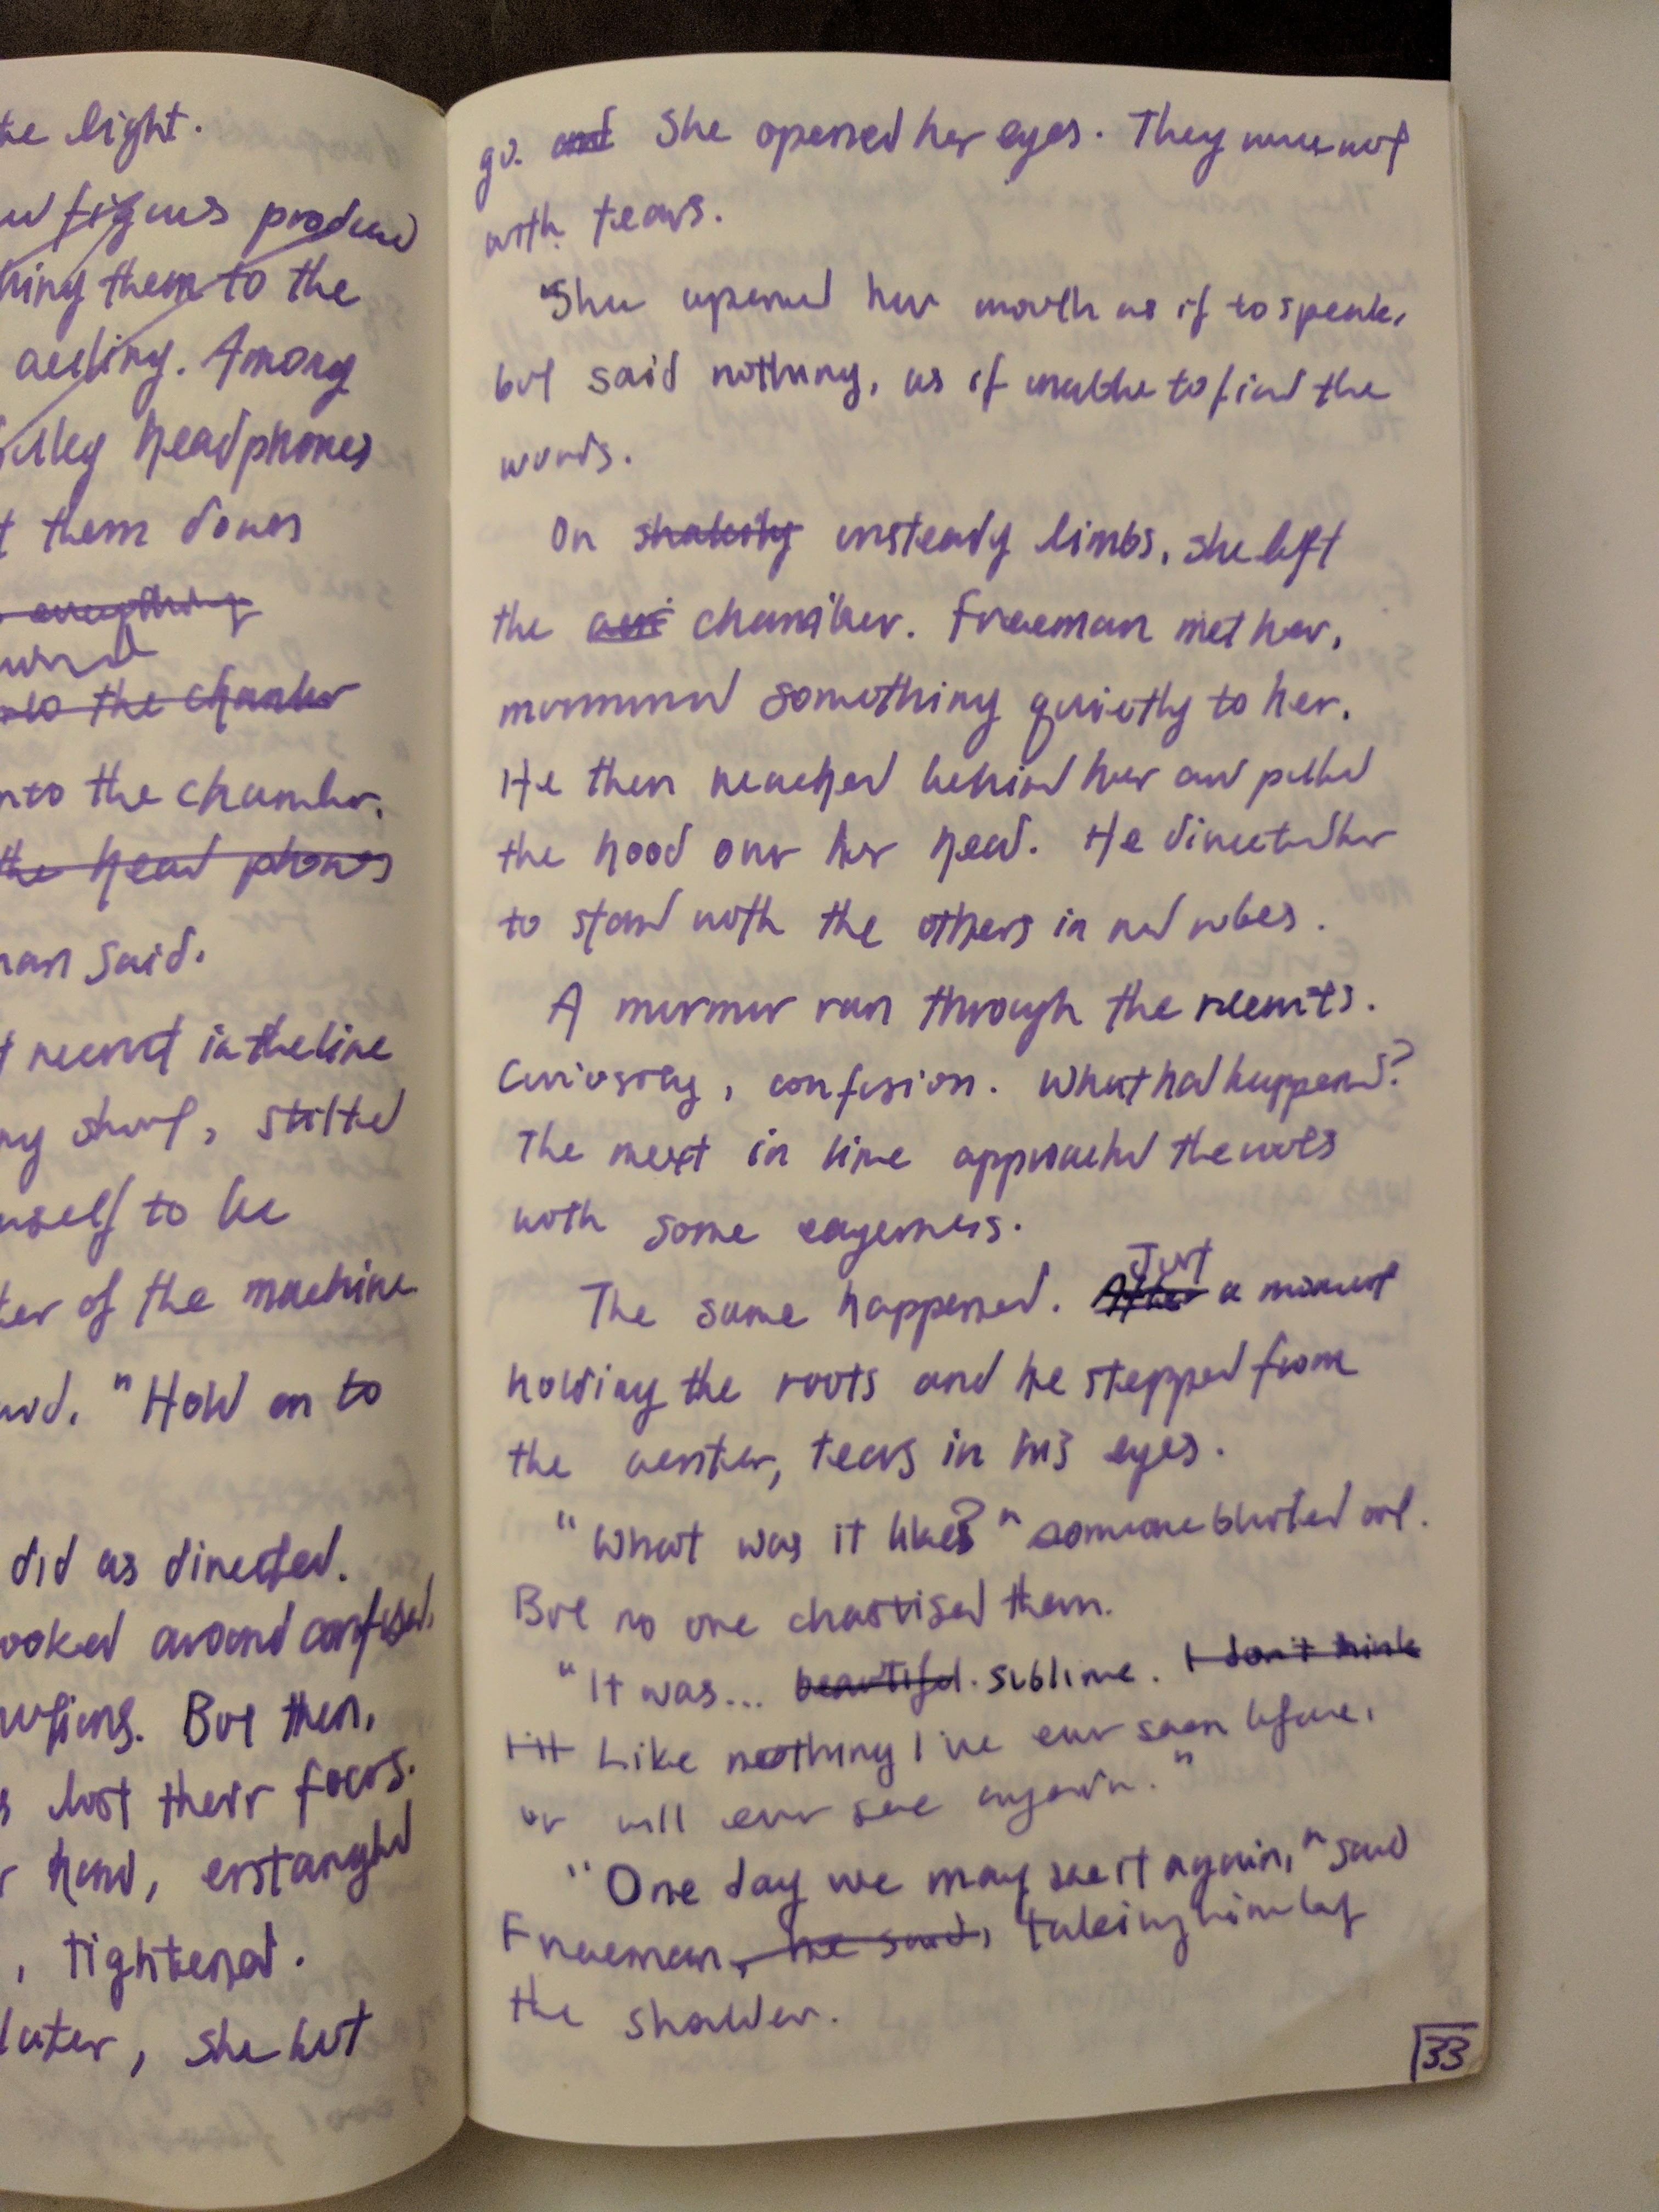 the light.
figures produced
them to the
ceiling. Among
headphones
them down
everything
to the chamber
into the chamber.
the head phones
said.
recruit in the line
short, stilted
to be
of the machine
"Hold on to
did as directed.
looked around confused.
But then,
lost their focus.
hand, entangled
, tightened.
later, she let
go. and She opened her eyes. They were wet
with tears.
She opened her mouth as if to speak,
but said nothing, as if unable to find the
words.
On shakily unsteady limbs, she left
the chamber. Freeman met her,
murmured something quietly to her.
He then reached behind her and pulled
the hood over her head. He directed her
to stand with the others in red robes.
A murmur ran through the recruits.
Curiosity, confusion. What had happened?
The next in line approached the roots
with some eagerness.
The same happened. After Just a moment
holding the roots and he stepped from
the center, tears in his eyes.
"What was it like?" someone blurted out.
But no one chastised them.
"It was... beautiful. sublime. I don't think
I'll Like nothing I've ever seen before,
or will ever see again."
"One day we may see it again," said
Freeman, he said, taking him by
the shoulder.
33